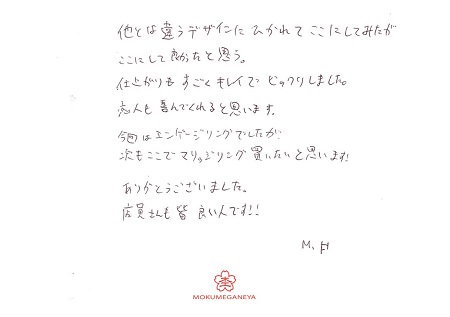 他とは違うデザインにひかれてここにしてみたが
ここにして良かったと思う。
仕上がりもすごくキレイでビックリしました。
恋人も喜んでくれると思います。
今回はエンゲージリングでしたが
次もここでマリッジリング買いたいと思います!
ありがとうございました。
店員さんも皆良い人です!!
M.H
MOKUMEGANEYA